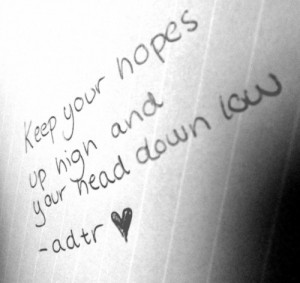 Keep your hopes
up high and
your head down low
-adtr ♥